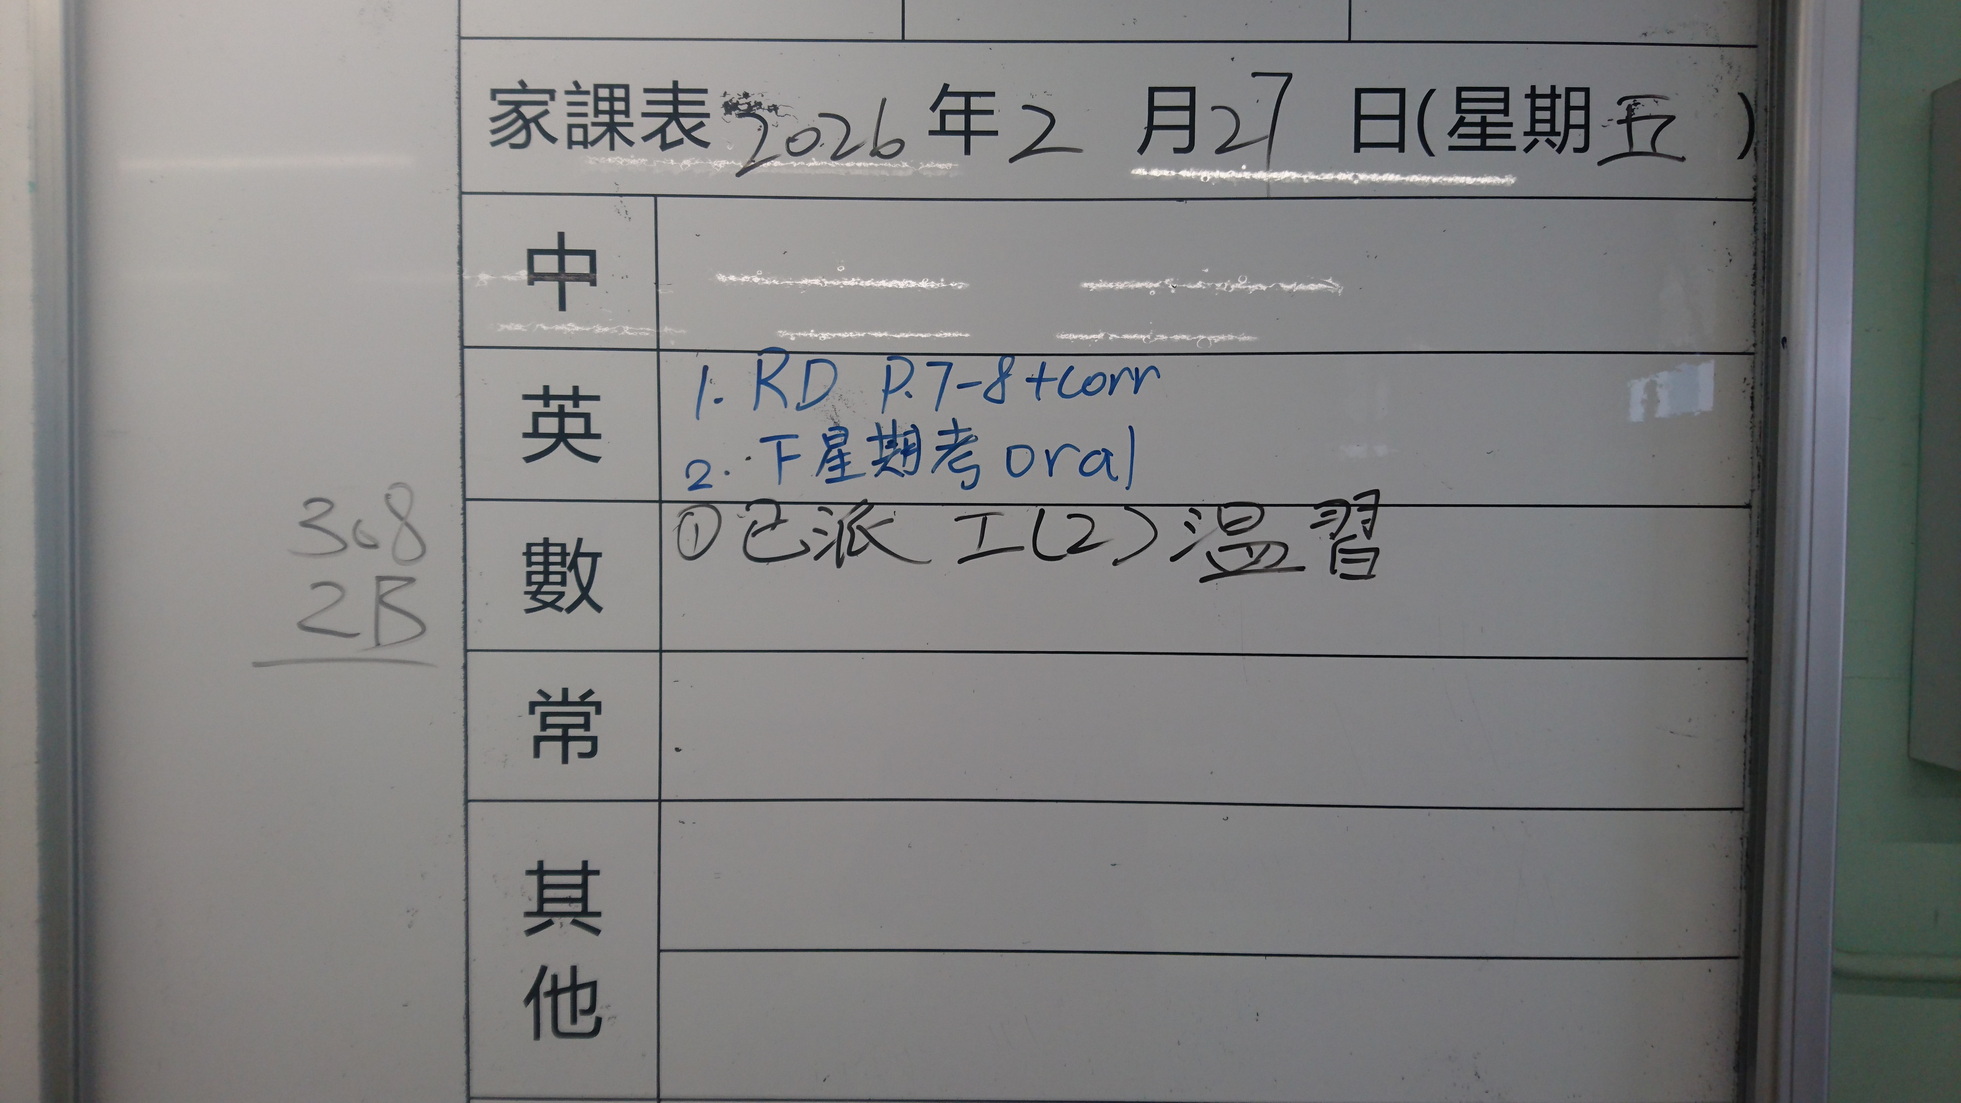 家課表 2026 年 2 月 27 日(星期 五 )
中
英
1. RD P.7-8+corr
2. 下星期考 oral
數
① 已派 工(2) 温習
常
其他
3.8
2B